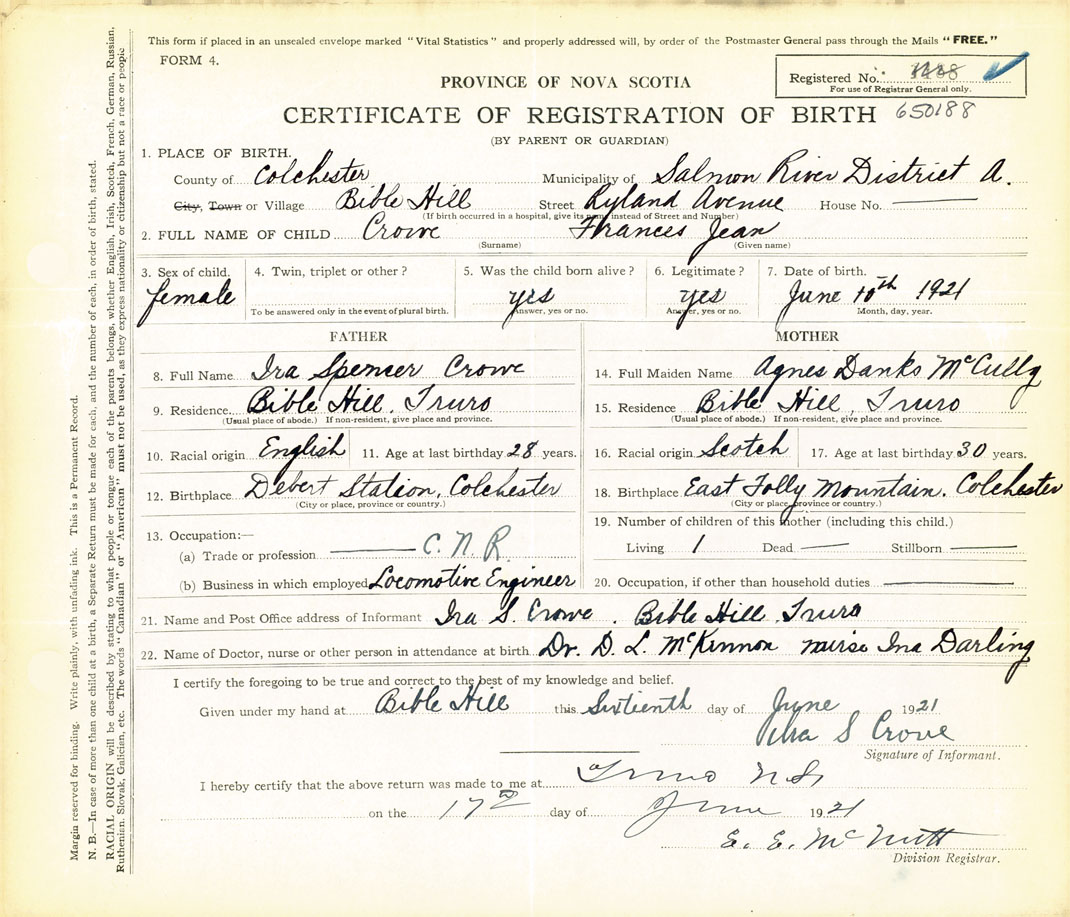 This form if placed in an unsealed envelope marked "Vital Statistics" and properly addressed will, by order of the Postmaster General pass through the Mails "FREE."
FORM 4.
PROVINCE OF NOVA SCOTIA
Registered No.
For use of Registrar General only.
CERTIFICATE OF REGISTRATION OF BIRTH 650188
(BY PARENT OR GUARDIAN)
1. PLACE OF BIRTH.
County of Colchester Municipality of Salmon River District A.
City, Town or Village Bible Hill Street Ryland Avenue House No. —
(If birth occurred in a hospital, give its name instead of Street and Number)
2. FULL NAME OF CHILD Crowe Frances Jean
(Surname) (Given name)
3. Sex of child. 4. Twin, triplet or other? 5. Was the child born alive? 6. Legitimate? 7. Date of birth.
female yes yes June 10th 1921
To be answered only in the event of plural birth. Answer, yes or no. Answer, yes or no. Month, day, year.
FATHER MOTHER
8. Full Name Ira Spencer Crowe 14. Full Maiden Name Agnes Danks McCully
9. Residence Bible Hill, Truro 15. Residence Bible Hill, Truro
(Usual place of abode.) If non-resident, give place and province. (Usual place of abode.) If non-resident, give place and province.
10. Racial origin English 11. Age at last birthday 28 years. 16. Racial origin Scotch 17. Age at last birthday 30 years.
12. Birthplace Debert Station, Colchester 18. Birthplace East Folly Mountain. Colchester
(City or place, province or country.) (City or place, province or country.)
13. Occupation:— 19. Number of children of this mother (including this child.)
(a) Trade or profession — C. N. R. Living 1 Dead — Stillborn —
(b) Business in which employed Locomotive Engineer 20. Occupation, if other than household duties —
21. Name and Post Office address of Informant Ira S. Crowe. Bible Hill, Truro
22. Name of Doctor, nurse or other person in attendance at birth Dr. D. L. McKinnon nurse Ina Darling
I certify the foregoing to be true and correct to the best of my knowledge and belief.
Given under my hand at Bible Hill this Sixteenth day of June 1921
Ira S Crowe
Signature of Informant.
I hereby certify that the above return was made to me at Truro N.S.
on the 17 day of June 1921
E. E. McNutt
Division Registrar.
Margin reserved for binding. Write plainly, with unfading ink. This is a Permanent Record.
N. B.—In case of more than one child at a birth, a Separate Return must be made for each, and the number of each, in order of birth, stated.
RACIAL ORIGIN will be described by stating to what people or tongue each of the parents belongs, whether English, Irish, Scotch, French, German, Russian,
Ruthenian, Slovak, Galician, etc. The words "Canadian" or "American" must not be used, as they express nationality or citizenship but not a race or people